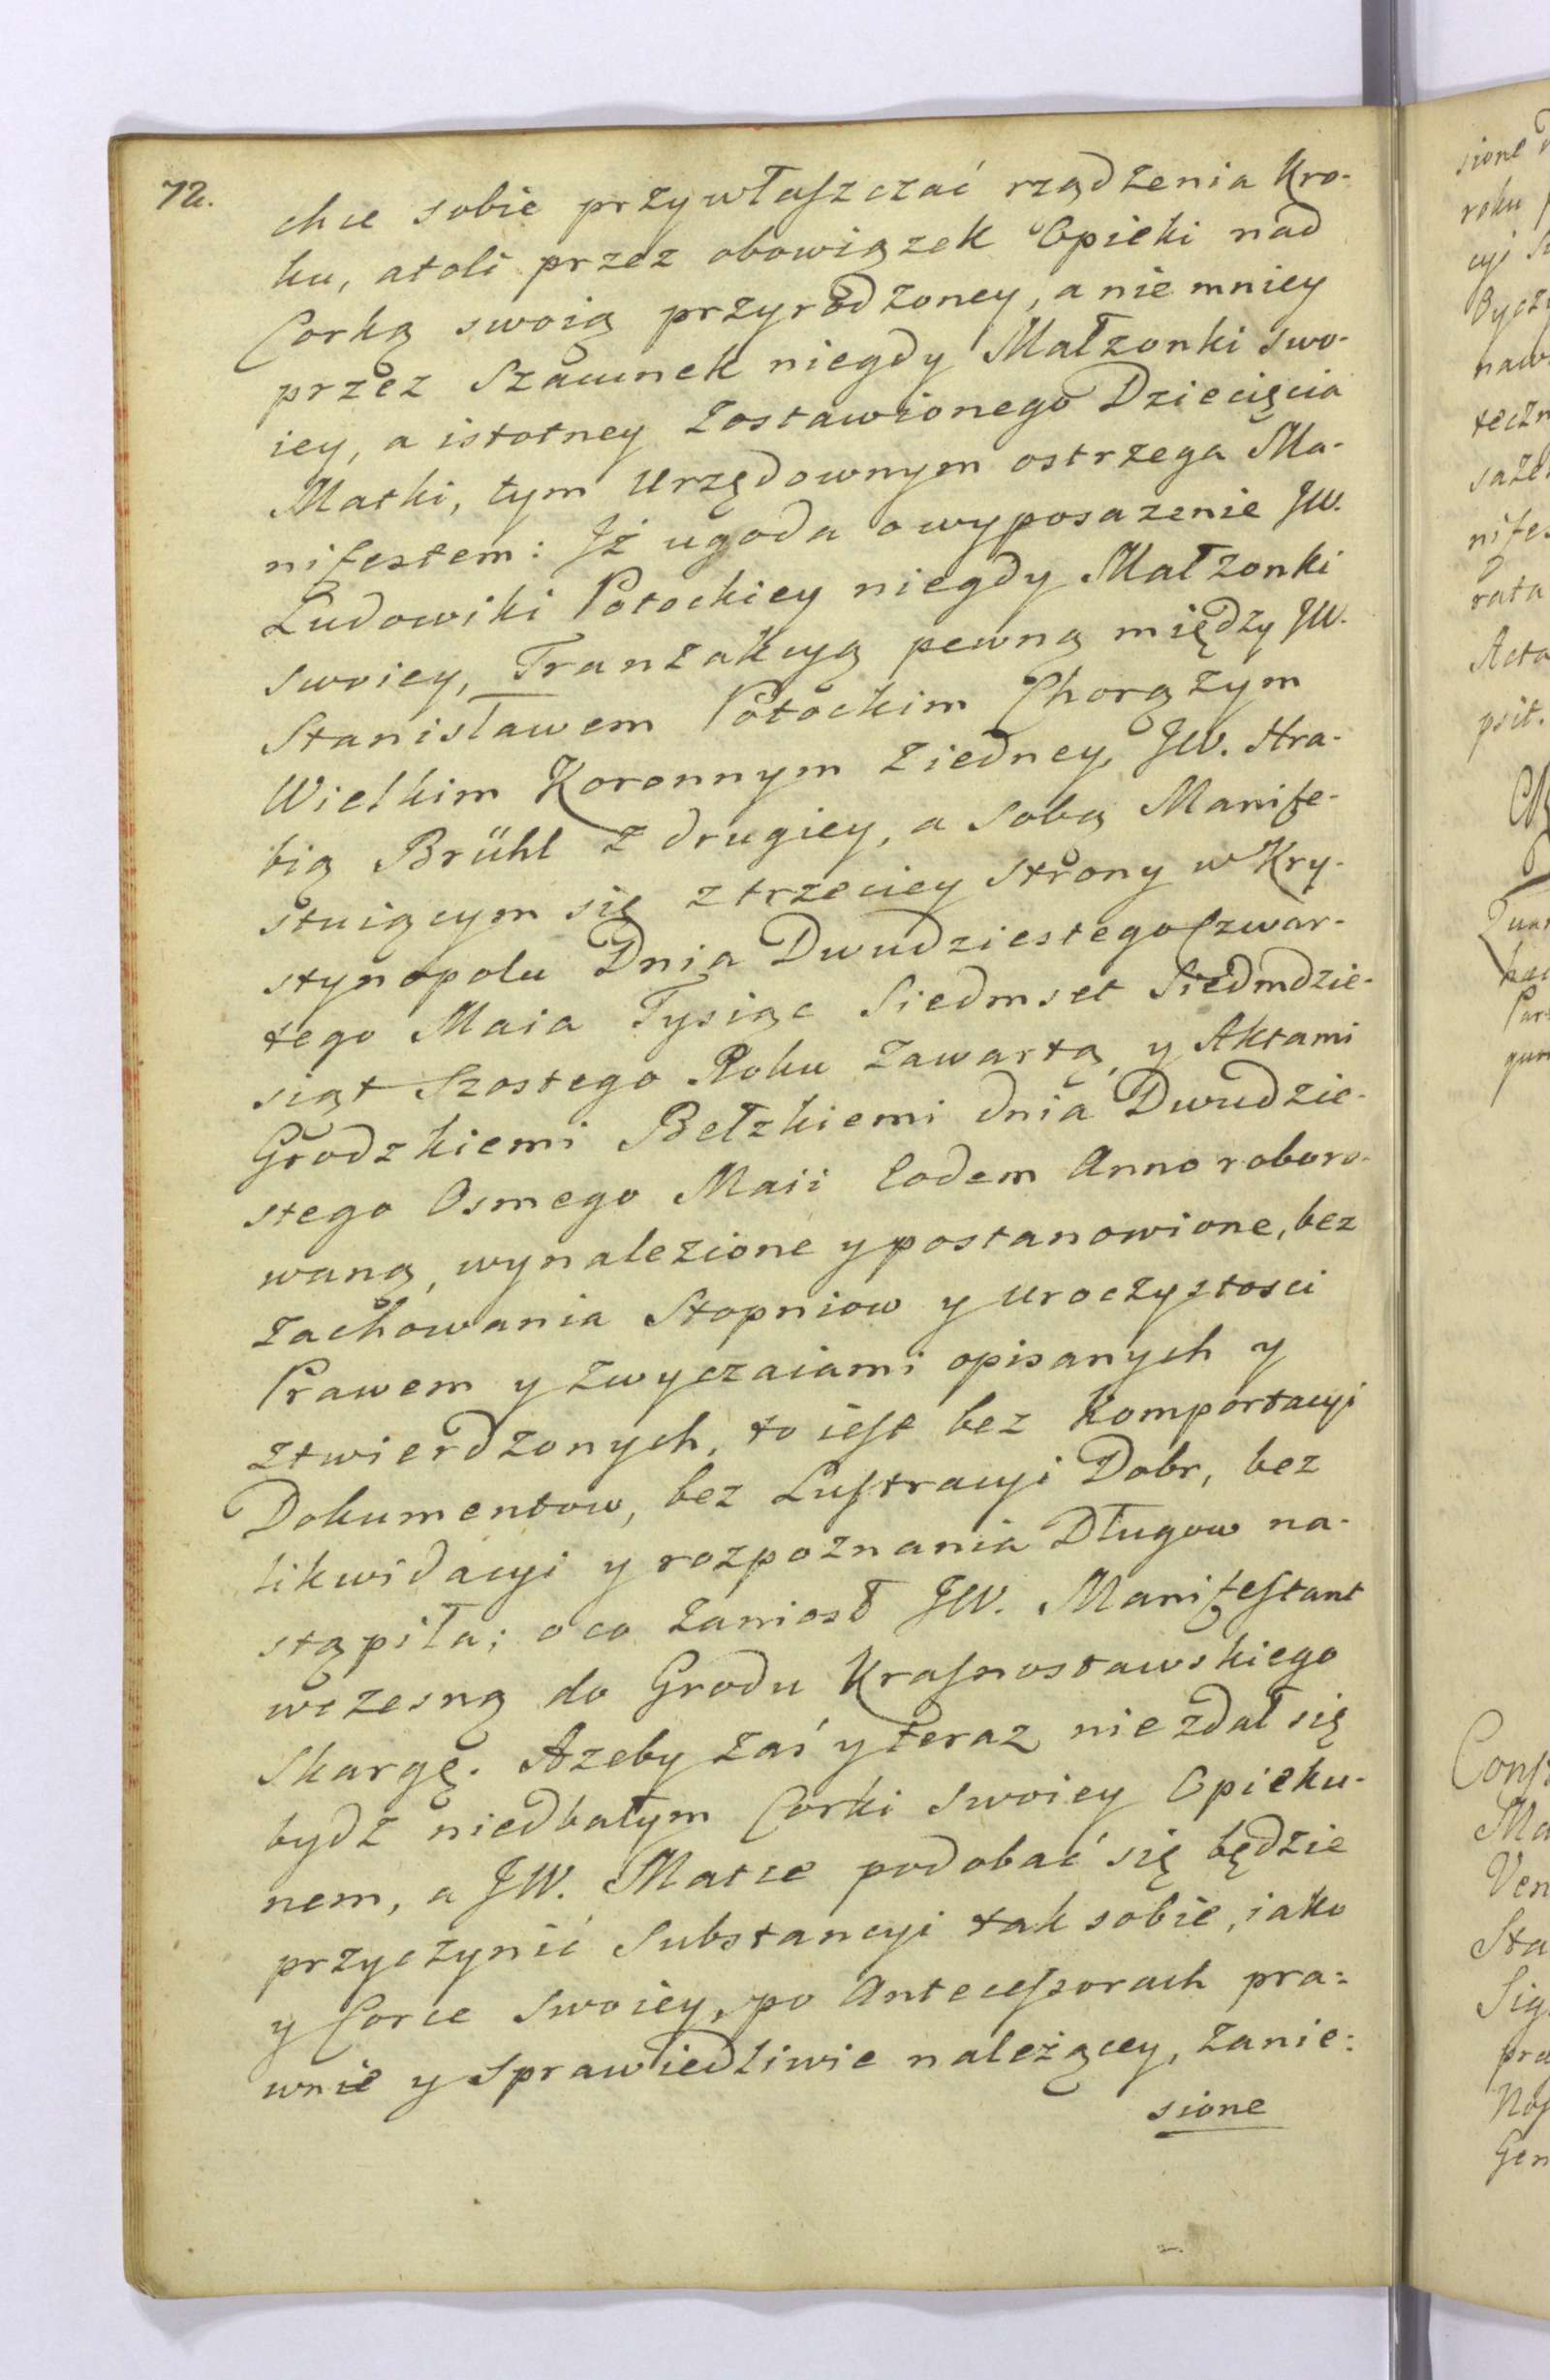 72.
chce sobie przywłaszczać rządzenia Kro-
ku, atoli przez obowiązek Opieki nad
Corką swoią przyrodzoney, a nie mniey
przez Szacunek niegdy Małzonki swo-
iey, a istotney zostawionego Dziecięcia
Matki, tym Urzędownym ostrzega Ma-
nifestem: Jż ugoda o wyposazenie JW.
Ludowiki Potockiey niegdy Małzonki
swoiey, Tranzakcyą pewną między JW.
Stanisławem Potockim Chorązym
Wielkim Koronnym z iedney, JW. Hra-
bią Brühl z drugiey, a sobą Manife-
stuiącym się z trzeciey strony w Kry-
stynopolu Dnia Dwudziestego Czwar-
tego Maia Tysiąc Siedmset Siedmdzie-
siąt Szostego Roku zawartą, y Aktami
Grodzkiemi Bełzkiemi dnia Dwudzie-
stego Osmego Maii Eodem Anno roboro-
waną, wynalezione y postanowione, bez
zachowania Stopniow y uroczystosci
Prawem y zwyczaiami opisanych y
ztwierdzonych, to iest bez Komportacyi
Dokumentow, bez Lustracyi Dobr, bez
likwidacyi y rozpoznania Długow na-
stąpiła; o co zaniosł JW. Manifestant
wczesną do Grodu Krasnostawskiego
Skargę. Azeby zaś y teraz nie zdał się
bydz niedbałym Corki swoiey Opieku-
nem, a JW. Matce podobać się będzie
przyczynić Substancyi tak sobie, iako
y Corce swoiey, po Antecessorach pra-
wnie y sprawiedliwie należącey, zanie-
sione